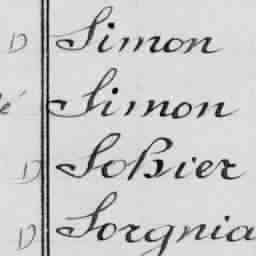 D Simon
é Simon
D Soßier
D Sorgnia